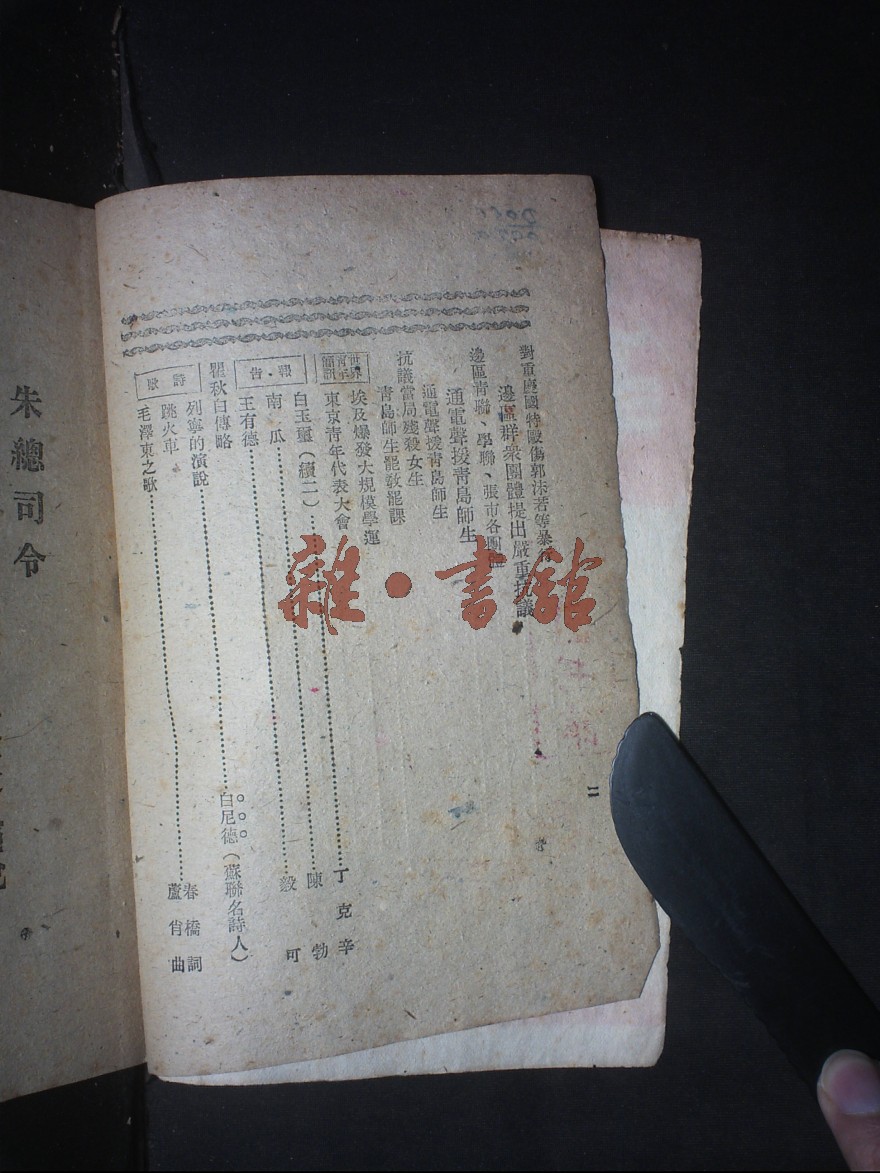 對重慶國特毆傷郭沫若等暴行
邊區群衆團體提出嚴重抗議
邊區青聯、學聯、張市各團體
通電聲援青島師生
通電聲援青島師生
抗議當局殘殺女生
青島師生罷敎罷課
世界青年簡訊
埃及爆發大規模學運
東京青年代表大會
報·告
白玉璽（續二）………丁克辛
南瓜………陳勃
王有德………毅可
瞿秋白傳略
詩歌
列寧的演說………白尼德（蘇聯名詩人）
跳火車
毛澤東之歌………春橋詞
蘆肖曲
二
朱總司令
雜·書館